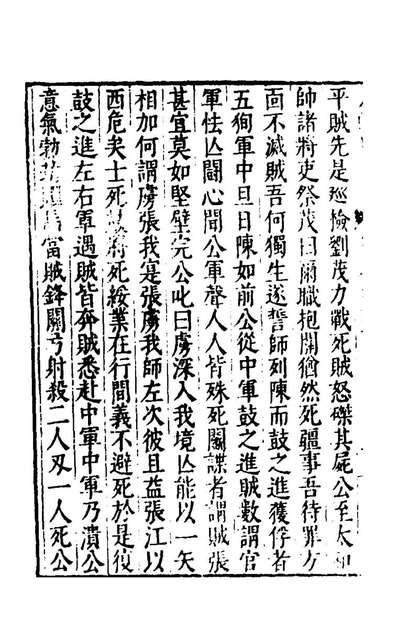 平賊先是巡檢劉茂力戰死賊怒磔其屍公至太和
帥諸將吏祭茂曰爾職抱關猶然死疆事吾待罪方
面不滅賊吾何獨生遂誓師列陳而鼓之進獲俘者
五狥軍中旦日陳如前公從中軍鼓之進賊數謂官
軍怯亾鬪心聞公軍聲人人皆殊死鬪諜者謂賊張
甚宜莫如堅壁完公叱曰虜深入我境亾能以一矢
相加何謂虜張我寔張虜我師左次彼且益張江以
西危矣士死將死綏業在行間義不避死於是復
鼓之進左右軍遇賊皆奔賊悉赴中軍中軍乃潰公
意氣勃馬當賊鋒關弓射殺二人刄一人死公